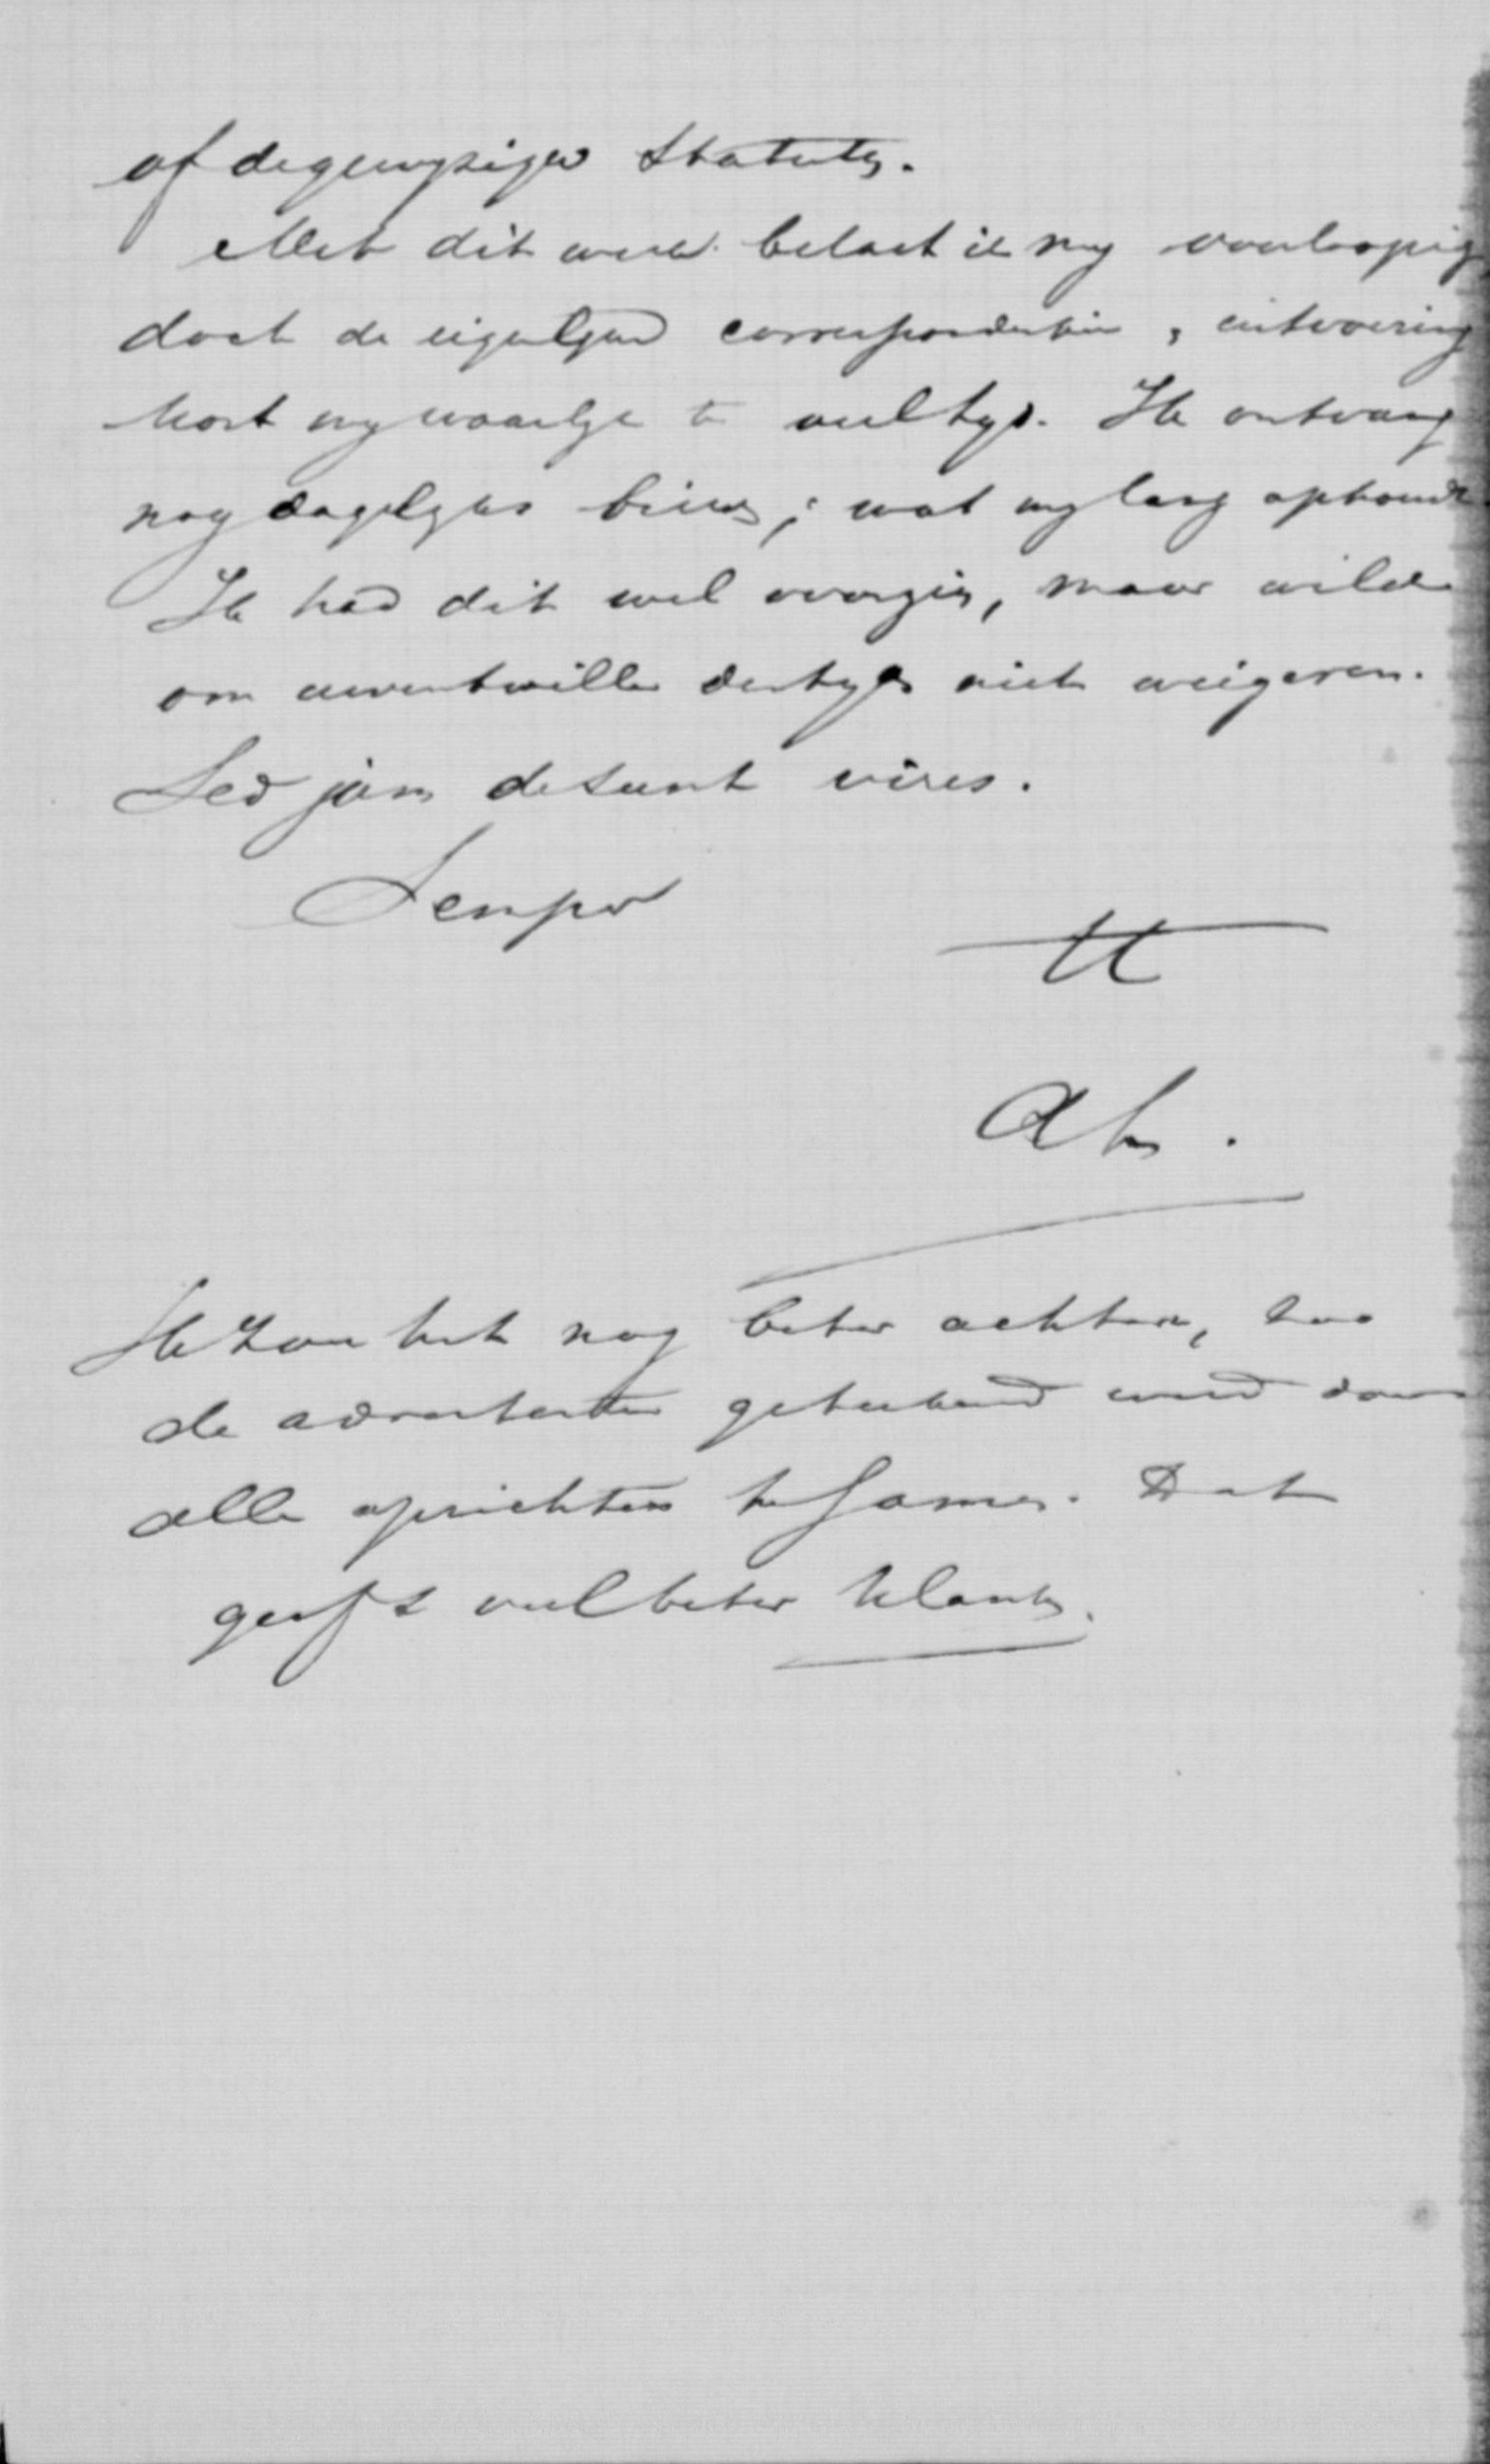 of degewysigde Statuten.
Met dit werk belast ik my voorloopig,
doch de eigenlyke correspondentie, uitvoering
kost my waarlyk te veel tyd. Ik ontvang
nog dagelyks brieven; wat my lang ophoudt.
Ik had dit wel voorzien, maar wilde
om uwentwille destyds niet weigeren.
Sed jam desunt vires.
Semper
tt
AK.
Ik zou het nog beter achten, zoo
de advertentie geteekend werd door
alle oprichters te samen. Dat
geeft veel beter klank.